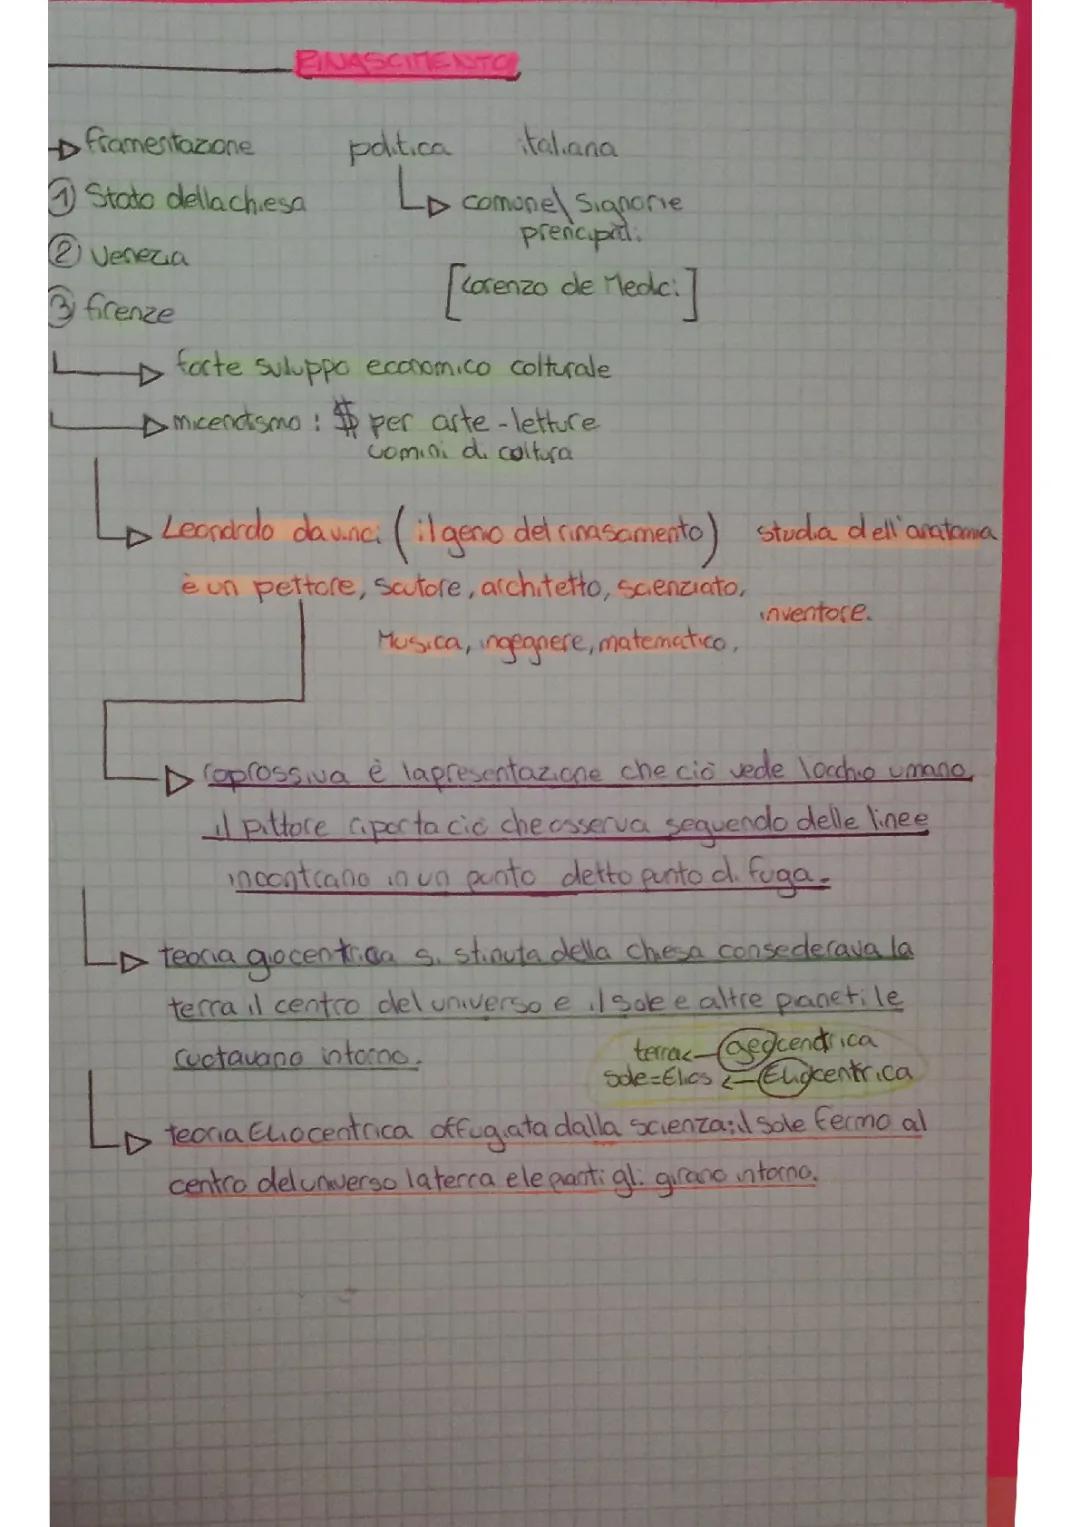 RINASCIMENTO
framentazione politica italiana
① Stato dellachiesa
comune\ Signorie
prencipati:
② Venezia
[Lorenzo de Medci:]
③ firenze
forte suluppo economico colturale
micenatismo: $ per arte - letture
uomini di coltura
Leonardo davinci (il genio del rinasamento) studia dell'anatomia
è un pettore, scutore, architetto, scienziato,
inventore.
Musica, ingegnere, matematico,
è lapresentazione che ciò vede locchio umano
il pittore riporta ciò che osserva seguendo delle linee
incontrano in un punto detto punto di fuga.
teoria giocentrica si stinuta della chiesa consederava la
terra il centro del universo e il sole e altre pianeti le
ruotavano intorno.
terra< geocendrica
sole=Elios <- Eliocentrica
teoria Eliocentrica offugiata dalla scienza: il sole fermo al
centro deluniverso laterra ele pianti gli girano intorno.